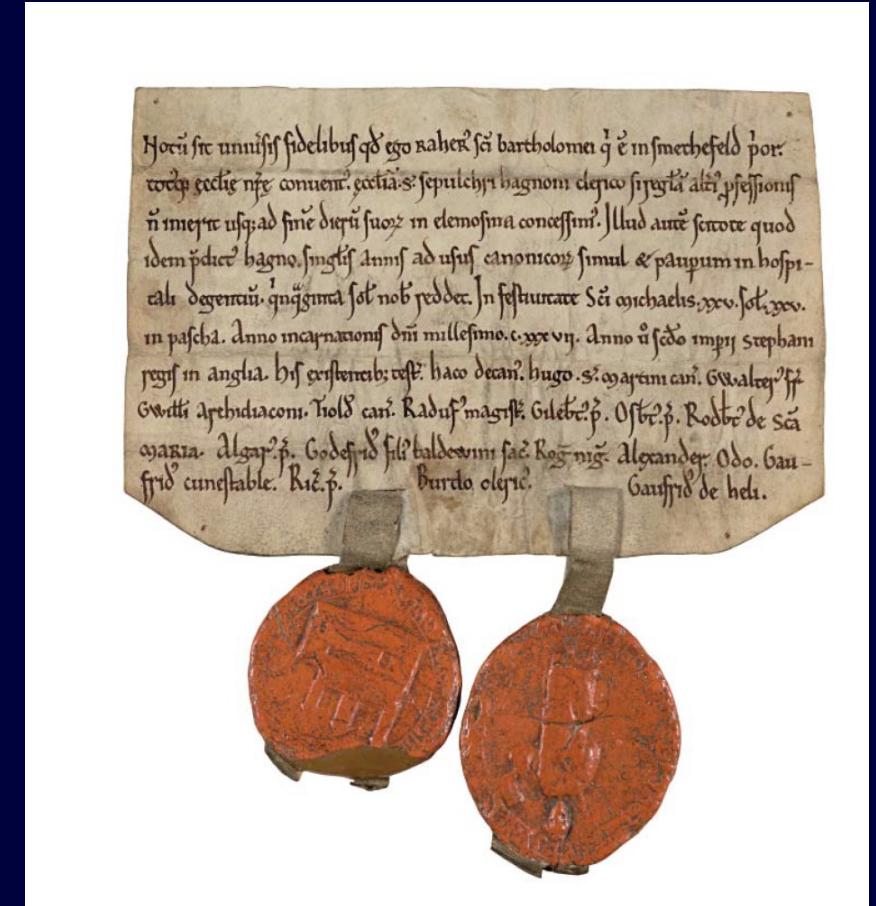 Notū sit uniu͛sis fidelibus qđ ego Raher͛ scī bartholomei q̇ ē in smethefeld p̓or.
totꝰq; ęcclię nr̄ę conuent᷒. ęcclīā .s. sepulchri hagnoni clerico si regl̄ā alti᷒ ꝓfessionis
n̄ inierit usq; ad finē dierū suoꝝ in elemosina concessim᷒. Illud autē scitote quod
idem p̄dict᷒ hagno. singlis annis ad usus canonicoꝝ simul & paupum in hospi-
tali degentiū. q̇nq̈ginta sol̄ nob̄ reddet. In festiuitate Scī michaelis .xxv. sol̄. .xxv.
in pascha. Anno incarnationis dn̄i millesimo. c. xxx vij. Anno u̓ scđo imp̄ij stephani
regis in anglia. his existentib; test᷒. haco decan᷒. hugo .s. martini can᷒. Gwalter᷒ fr̄
Gwilli archidiaconi. Tiold᷒ can᷒. Radulf᷒ magist᷒. Gileb̄t᷒. p̄. Osb̄t᷒. p̄. Rodb̄t᷒ de Scā
MARIA. Algar᷒. p̄. Godefrid᷒ fili᷒ baldewini sac̄. Rog̅ nig̅. Alexander. Odo. Gau-
frid᷒ cunestable. Ric̄. p̄. Burdo cleric᷒. Gaufrid᷒ de heli.